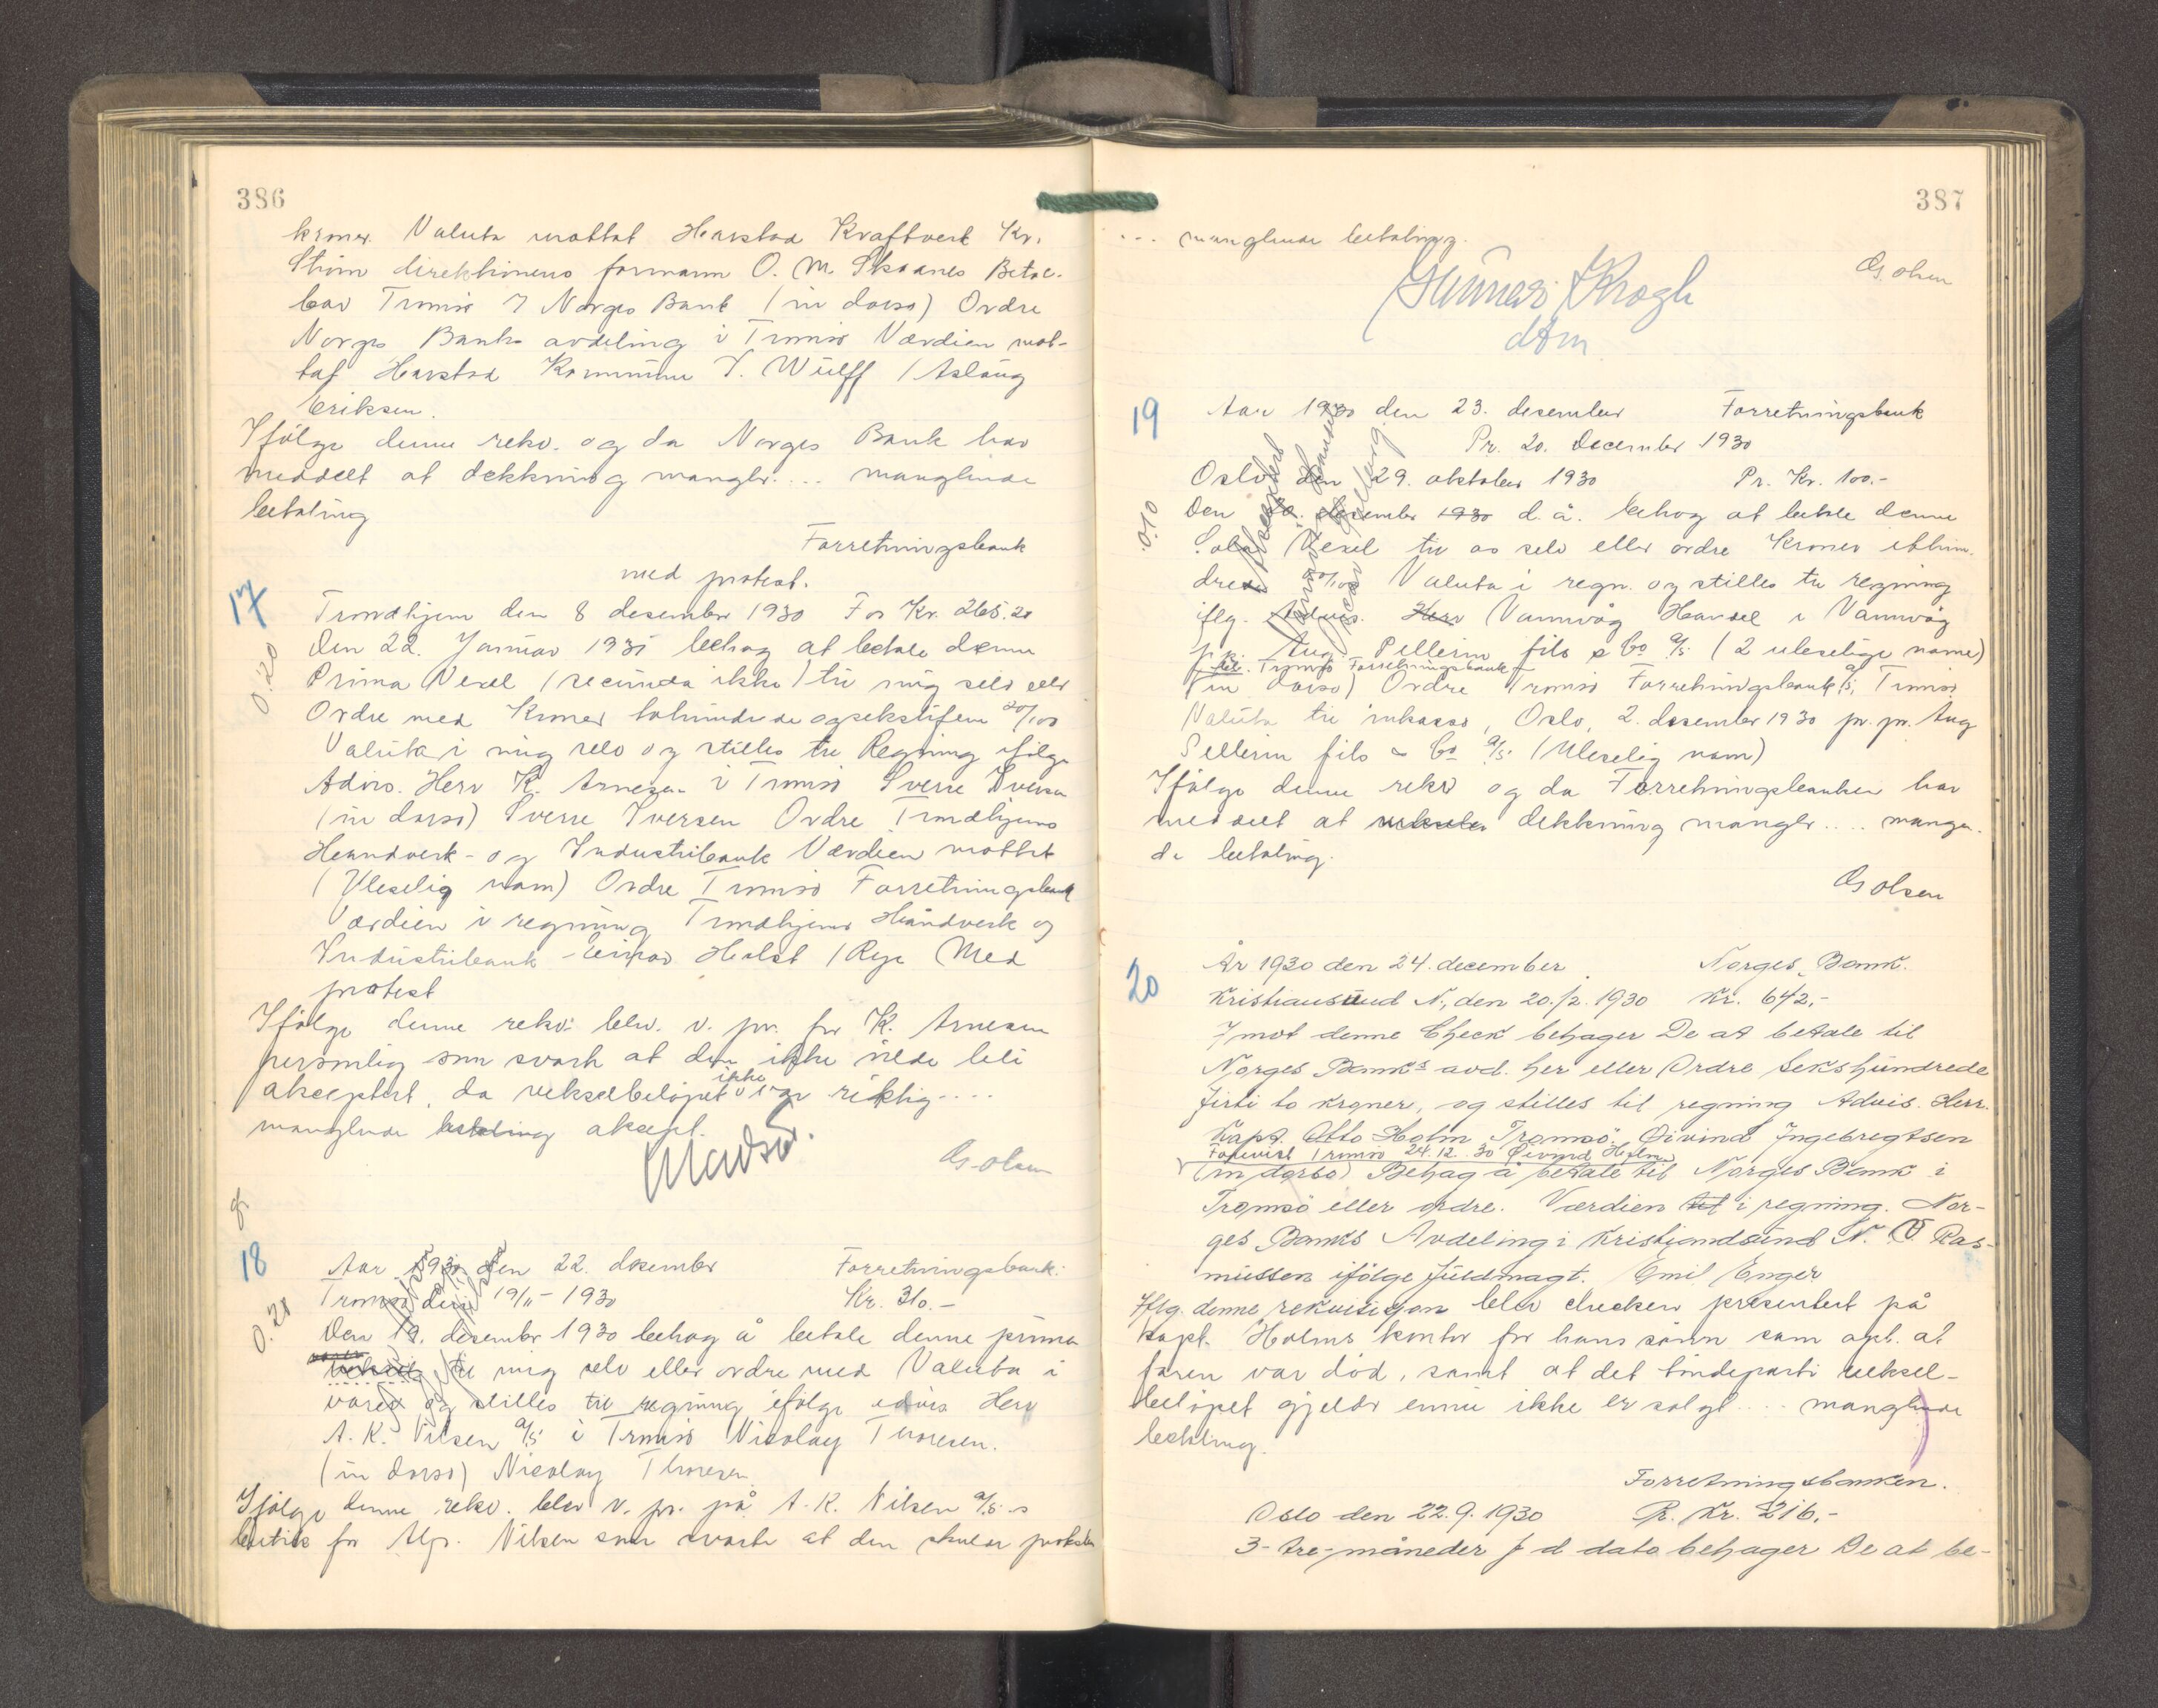 386
kroner. Valuta mottat Harstad Kraftverk Kr.
Strøm direktionens formann O. M. Skoanes Betal-
bar Tromsø Norges Bank (in dorso) Ordre
Norges Banks avdeling i Tromsø Værdien mot-
tat Harstad Kommune V. Wulff / Aslaug
Eriksen.
Ifølge denne rekv. og da Norges Bank har
meddelt at dekkning mangler.... manglende
betaling
Forretningsbank
med protest.
17
0.20
Trondhjem den 8 desember 1930 For Kr. 265.20
Den 22. Januar 1931 behag at betale denne
Prima Vexel (secunda ikke) til mig selv eller
Ordre med Kroner tohundrede ogsekstifem 20/100
Valuta i mig selv og stilles til Regning ifølge
Advis. Herr K. Arnesen i Tromsø Sverre Iversen
(in dorso) Sverre Iversen Ordre Trondhjems
Haandverk- og Industribank Værdien mottat
(Uleselig navn) Ordre Tromsø Forretningsbank
Værdien i regning Trondhjems Håndverk og
Industribank Einar Holst / Rye Med
protest
Ifølge denne rekv. blev v. pr. for K. Arnesen
personlig som svarte at den ikke vilde bli
akseptert, da vekselbeløpet ikke var riktig....
manglende betaling aksept.
G. Olsen
18
0.20
Aar 1930 den 22. desember Forretningsbank.
Tromsø den 19/11 - 1930 Kr. 310.-
Den 19. desember 1930 behag å betale denne prima
veksel til mig selv eller ordre med Valuta i
varer og stilles til regning ifølge advis Herr
A. K. Nilsen A/S i Tromsø Nicolay Thoresen.
(in dorso) Nicolay Thoresen
Ifølge denne rekv. blev v. pr. på A. K. Nilsen A/S-s
butik for Alf. Nilsen som svarte at den skulde protesteres
387
... manglende betaling.
G. Olsen
Gunnar Krogh
dfm
19
0.10
Aar 1930 den 23. desember Forretningsbank
Pr. 20. December 1930
Oslo den 29. oktober 1930 Pr. Kr. 100.-
Den 20. desember 1930 d.å. behag at betale denne
Sola Vexel til os selv eller ordre Kroner etthun-
drede 00/100 Valuta i regn. og stilles til regning
iflg. Advis. Herr Vannvåg Handel i Vannvåg
p.p. Aug. Pellerin fils & Co A/S (2 uleselige navne)
til Tromsø Forretningsbank
(in dorso) Ordre Tromsø Forretningsbank A/S, Tromsø
Valuta til inkasso, Oslo, 2. desember 1930 pr. pr. Aug
Pellerin fils & Co A/S (Uleselig navn)
Ifølge denne rekv og da Forretningsbanken har
meddelt at dekkning mangler.... manglen-
de betaling.
G Olsen
20
År 1930 den 24. december. Norges Bank.
Kristiansund N., den 20./12. 1930 Kr. 642,-
Imot denne Check behager De at betale til
Norges Banks avd. her eller Ordre Sekshundrede
firti to kroner, og stilles til regning Advis. Herr.
Kapt. Otto Holm Tromsø. Øivind Ingebregtsen
Forevist Tromsø 24.12.30 Øivind Holm
(in dorso) Behag å betale til Norges Bank i
Tromsö eller ordre. Værdien i regning. Nor-
ges Banks Avdeling i Kristiandsund N. O Ras-
mussen ifölge fuldmagt. Emil Enger
Iflg. denne rekvisisjon blev checken presentert på
kapt. Holms kontor for hans sønn som opl. at
faren var död, samt at det tøndeparti veksel-
beløpet gjelder ennu ikke er solgt.... manglende
betaling.
Forretningsbanken.
Oslo den 22.9.1930 R. Kr. 216,-
3- tre-måneder f d dato behager De at be-